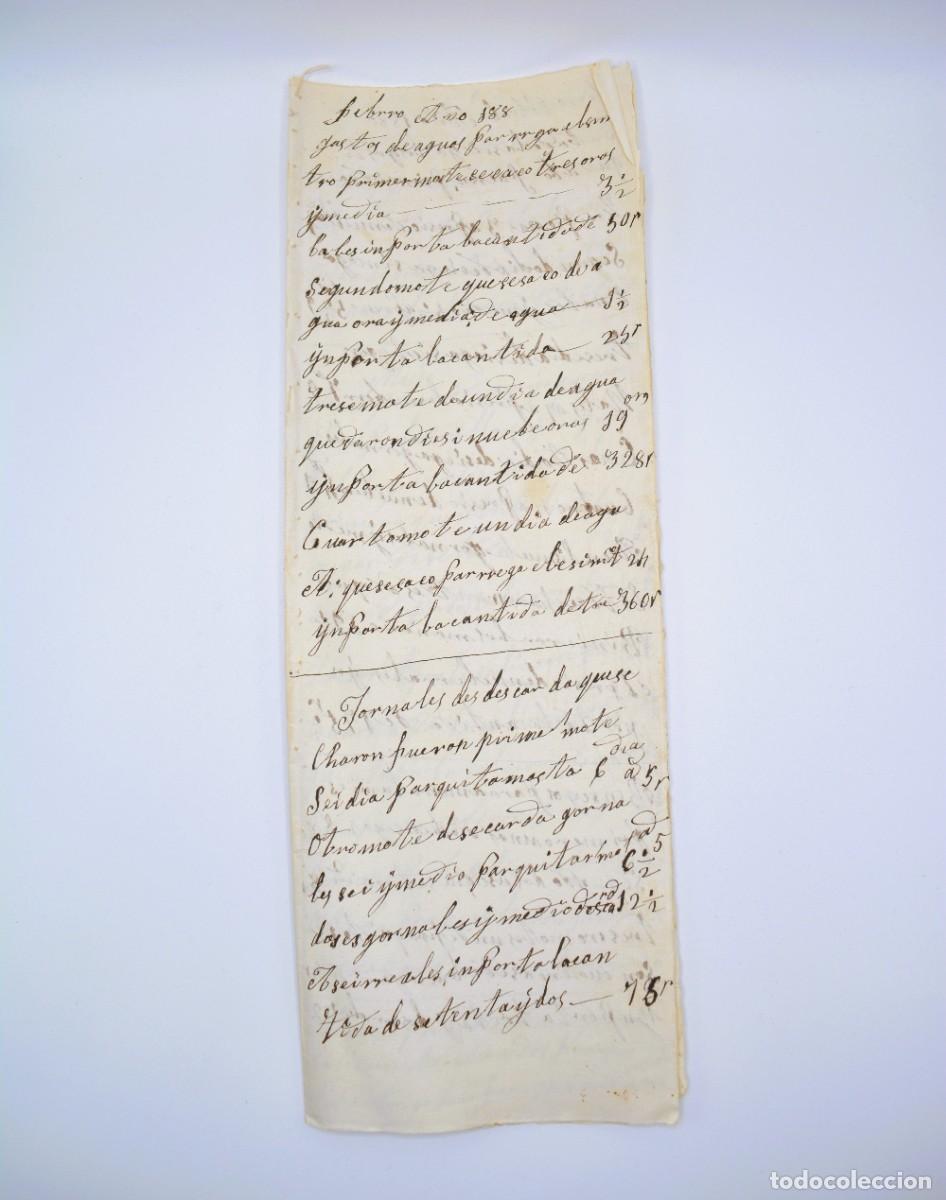 febrro Año 188
gastos de aguas par rega el sin
tro primer mote ce caco tres oras
y media 3 1/2
la les inporta la cantida de 50r
Segundo mote que se saco de a
gua ora y media de agua 1 1/2
ynporta la cantida 25r
trese mote de un dia de agua
quedaron diesinuebe oras 19 ors
ynporta la cantida de 328r
Cuarto mote un dia de agu
A: que se caco par rrega el
ynporta la cantida de tre 360r
Jornales des descarda que se
charon fueron prime mote
Sei dia par quita 6 dia a 5r
Otro mote de secarda gorna
les sei y medio par quitar 6 1/2
doses gornales y medio 12 1/2
A sei rreales inporta la can
tida de setenta y dos 75r
todocoleccion.com